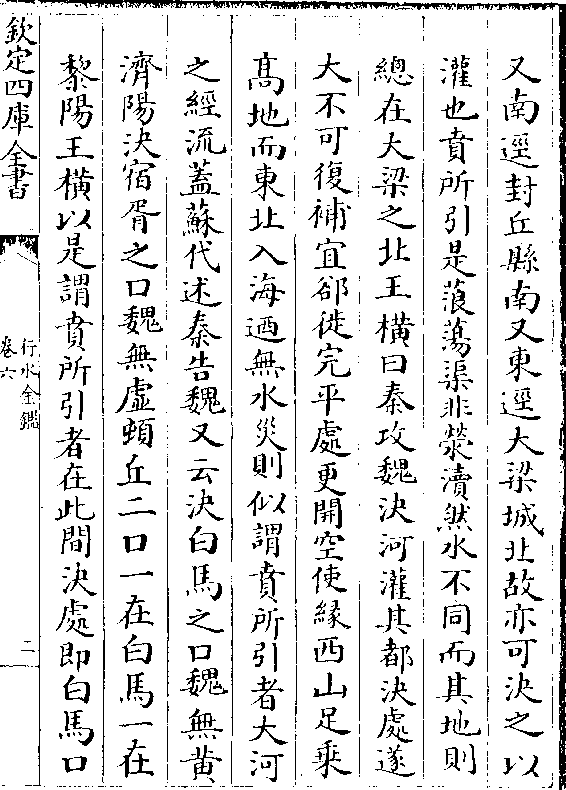 又南逕封丘縣南又東逕大梁城北故亦可決之以
灌也賁所引是蒗蕩渠非滎瀆然水不同而其地則
總在大梁之北王橫曰秦攻魏決河灌其都決處遂
大不可復補宜郤徙完平處更開空使緣西山足乗
髙地而東北入海迺無水災則似謂賁所引者大河
之經流蓋蘇代述秦告魏又云決白馬之口魏無黄
濟陽決宿胥之口魏無虛頓丘二口一在白馬一在
黎陽王橫以是謂賁所引者在此間決處即白馬口
欽定四庫全書
行水金鑑
卷六
二